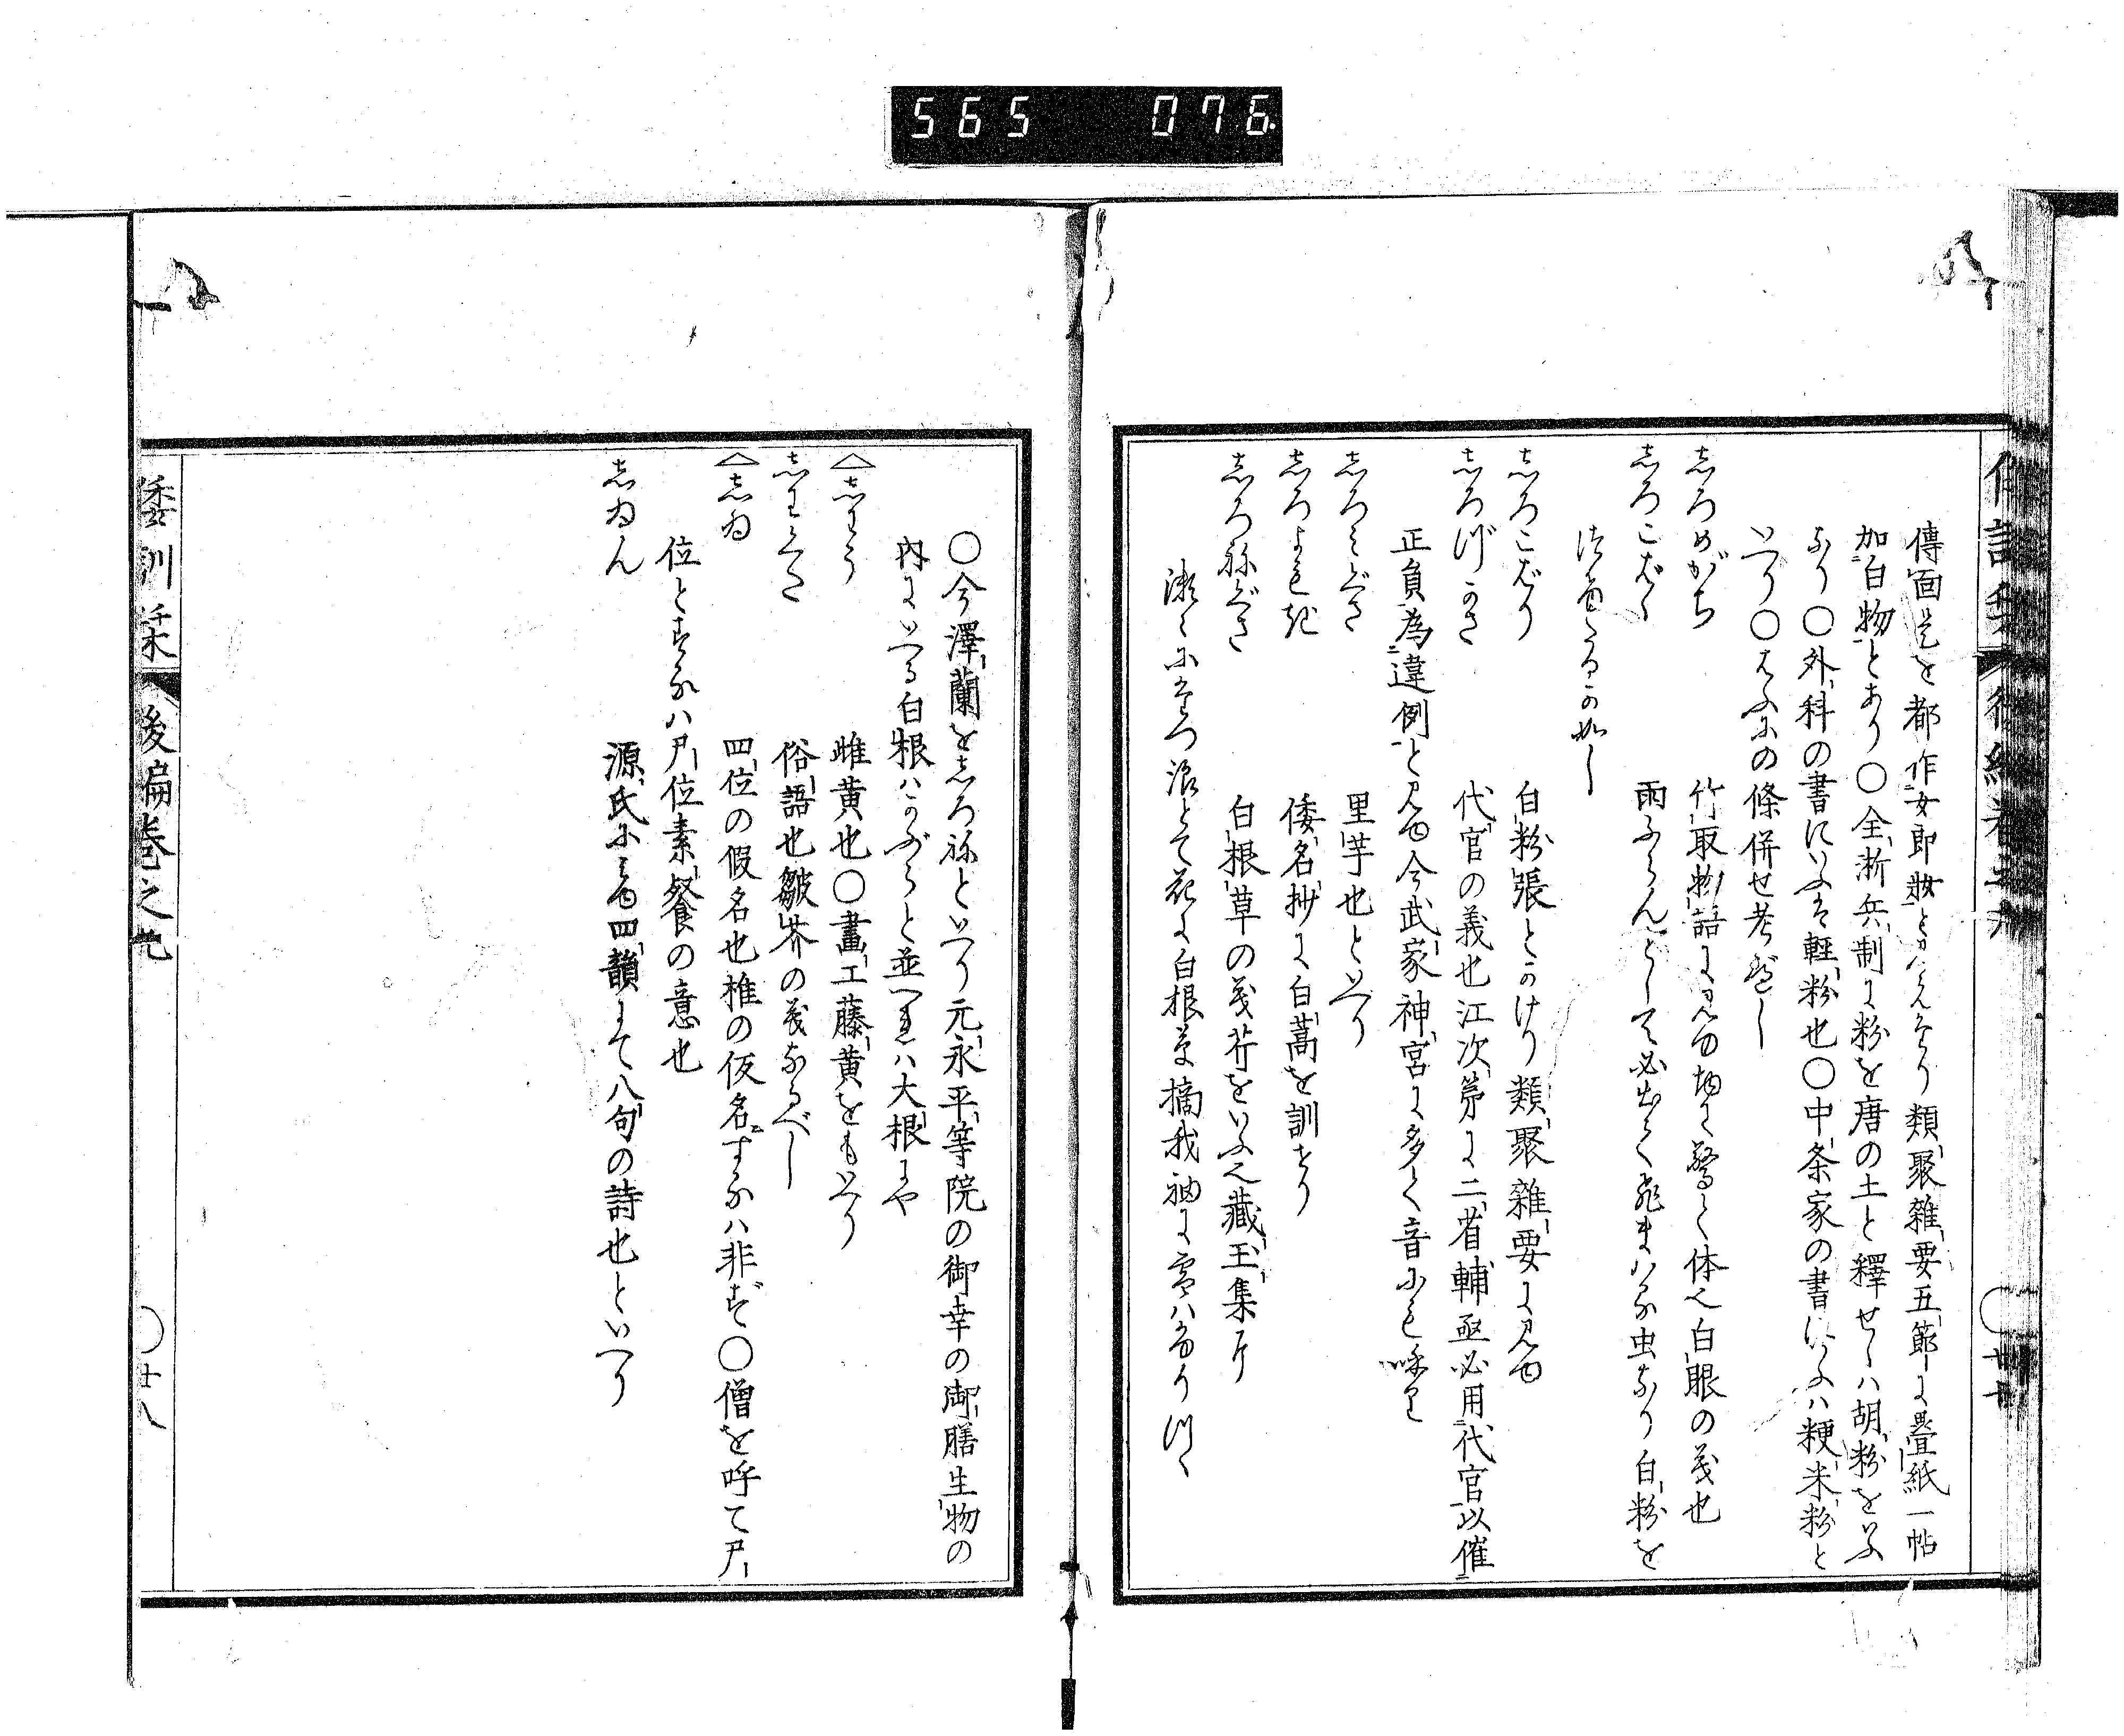 565 076
傳面是を都作女郎妝とハいへり類聚雜要五節に疊紙一帖
加白物とあり〇全浙兵制に粉を唐の土と釋せしハ胡粉をいふ
なり〇外科の書にいふは輕粉也〇中条家の書にいふハ粳米粉と
いへり〇はふにの條併せ考ふべし
志ろめがち 竹取物語に見ゆ物に驚く体也白眼の義也
志ろこばく 雨ふらんとして必出て飛まハる虫なり白粉を
つけたるか如し
志ろこばり 白粉張とかけり類聚雜要に見ゆ
志ろづかさ 代官の義也江次第に二省輔亟必用代官以催
正員為違例と見ゆ今武家神宮に多く音にも呼り
志ろみぐさ 里芋也といへり
志ろよもぎ 倭名抄に白蒿を訓せり
志ろねぐさ 白根草の義芹をいふ也藏玉集に
瀬々にたつ浪とて花に白根草摘我袖に雪ハかゝりつゝ
〇今澤蘭を志ろねといへり元永平等院の御幸の御膳生物の
內にいへる白根ハかぶらと並へれハ大根にや
志わう 雌黄也〇畫工藤黄をもいへり
志わくた 俗語也皺芥の義なるべし
志ゐ 四位の假名也椎の仮名するハ非ず〇僧を呼て尸
位とするハ尸位素餐の意也
志ゐん 源氏にみゆ四韻にて八句の詩也といへり
倭訓栞 後編卷之九
〇廿八